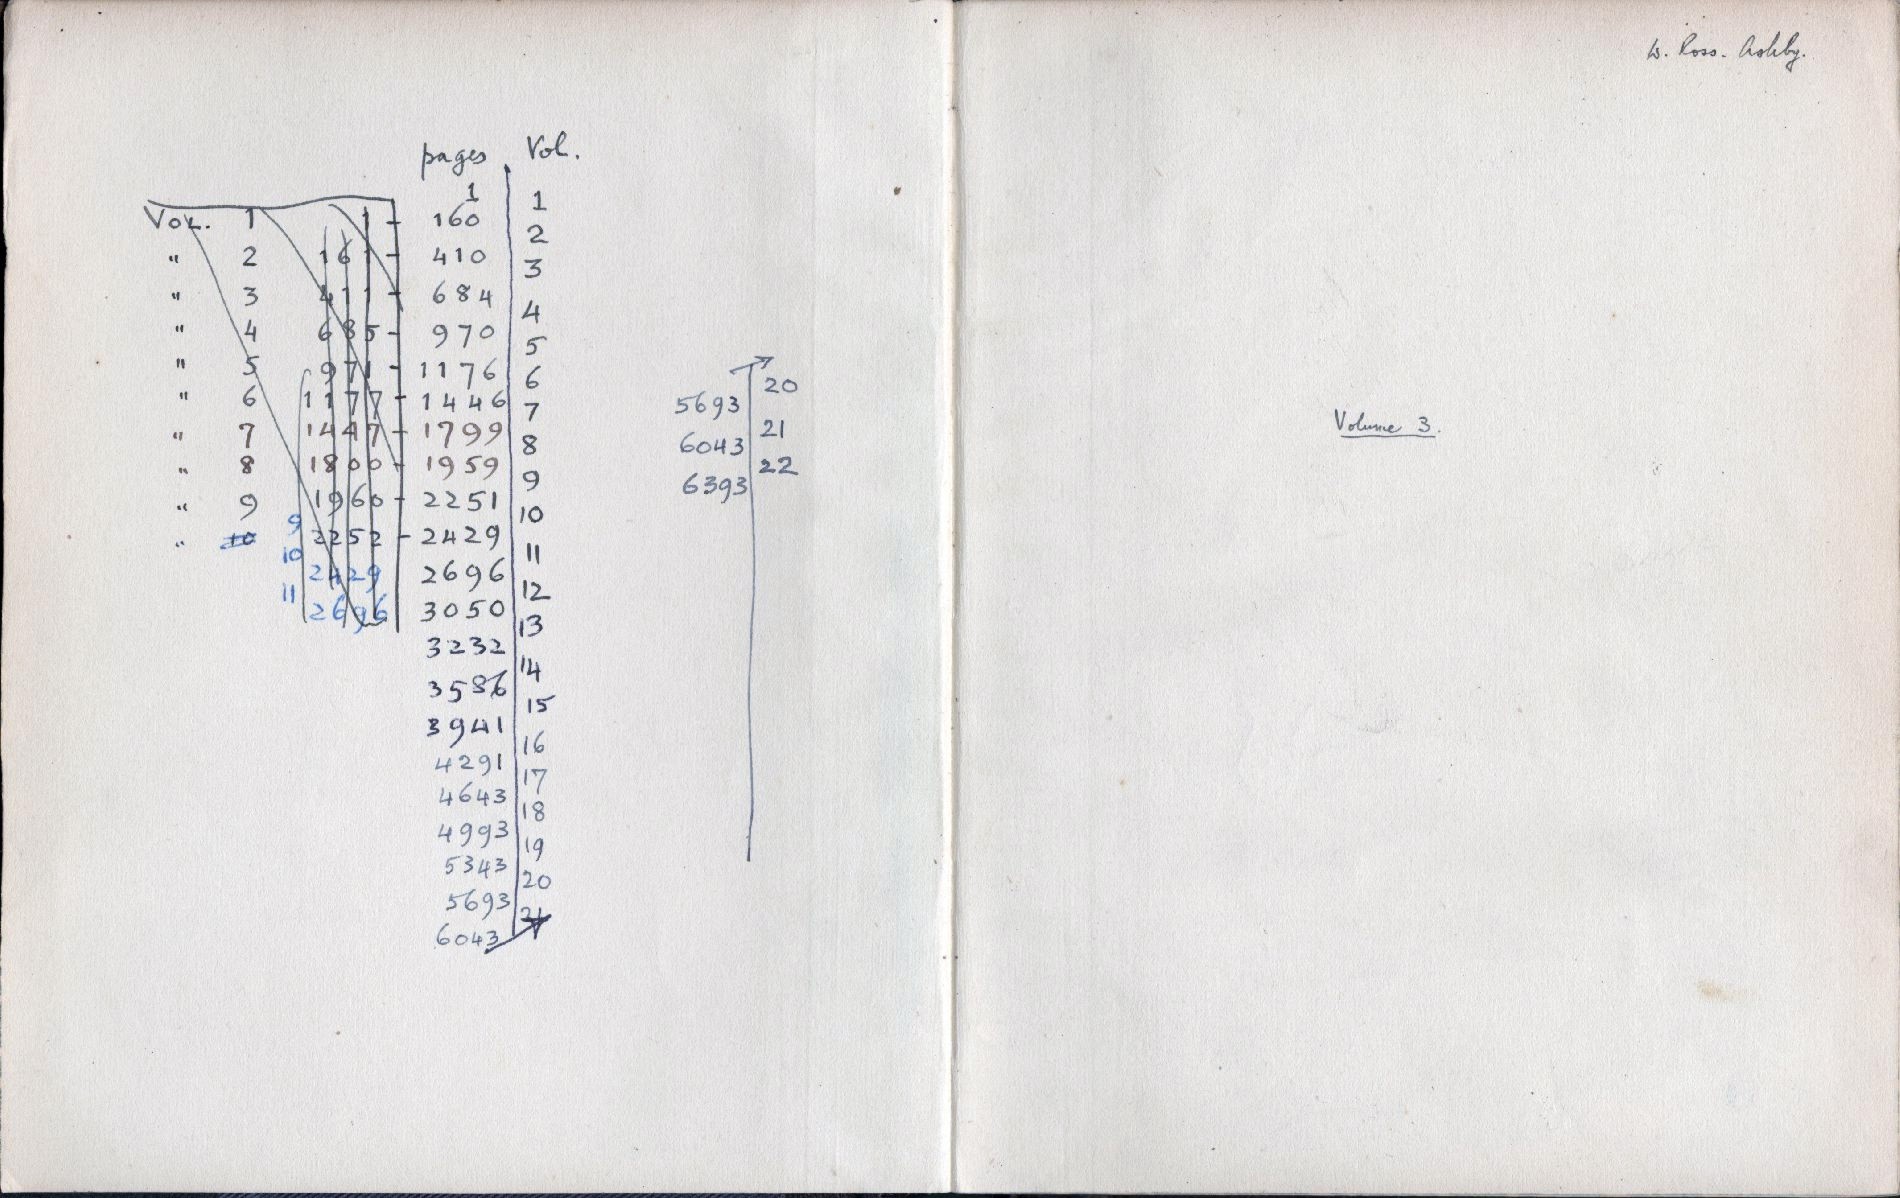 pages Vol.
1
1
Vol. 1 1 - 160
2
" 2 161 - 410
3
" 3 411 - 684
4
" 4 685 - 970
5
" 5 971 - 1176
6
" 6 1177 - 1446
7
" 7 1447 - 1799
8
" 8 1800 - 1959
9
" 9 1960 - 2251
10
" 10 9 2252 - 2429
11
10 2429 2696
12
11 2696 3050
13
3232
14
3586
15
3941
16
4291
17
4643
18
4993
19
5343
20
5693
21
6043
20
5693
21
6043
22
6393
W. Ross. Ashby.
Volume 3.